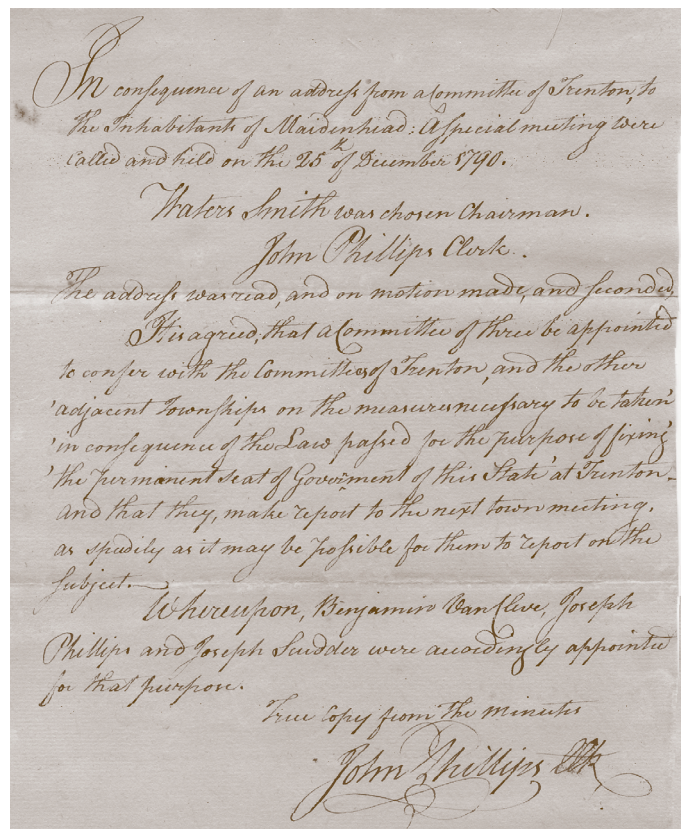 In consequence of an address from a Committee of Trenton, to
the Inhabitants of Maidenhead: A special meeting were
called and held on the 25th of December 1790.
Waters Smith was chosen Chairman.
John Phillips Clerk.
The address was read, and on motion made, and seconded,
It is agreed, that a Committee of three be appointed
to confer with the Committees of Trenton, and the other
'adjacent Townships on the measures necessary to be taken'
'in consequence of the Law passed for the purpose of fixing'
'the permanent seat of Goverment of this State' at Trenton–
and that they, make report to the next town meeting,
as spedily as it may be possible for them to report on the
subject.—
Whereupon, Benjamin VanCleve, Joseph
Phillips and Joseph Scudder were accordingly appointed
for that purpose.
True Copy from the minutes
John Phillips Clk